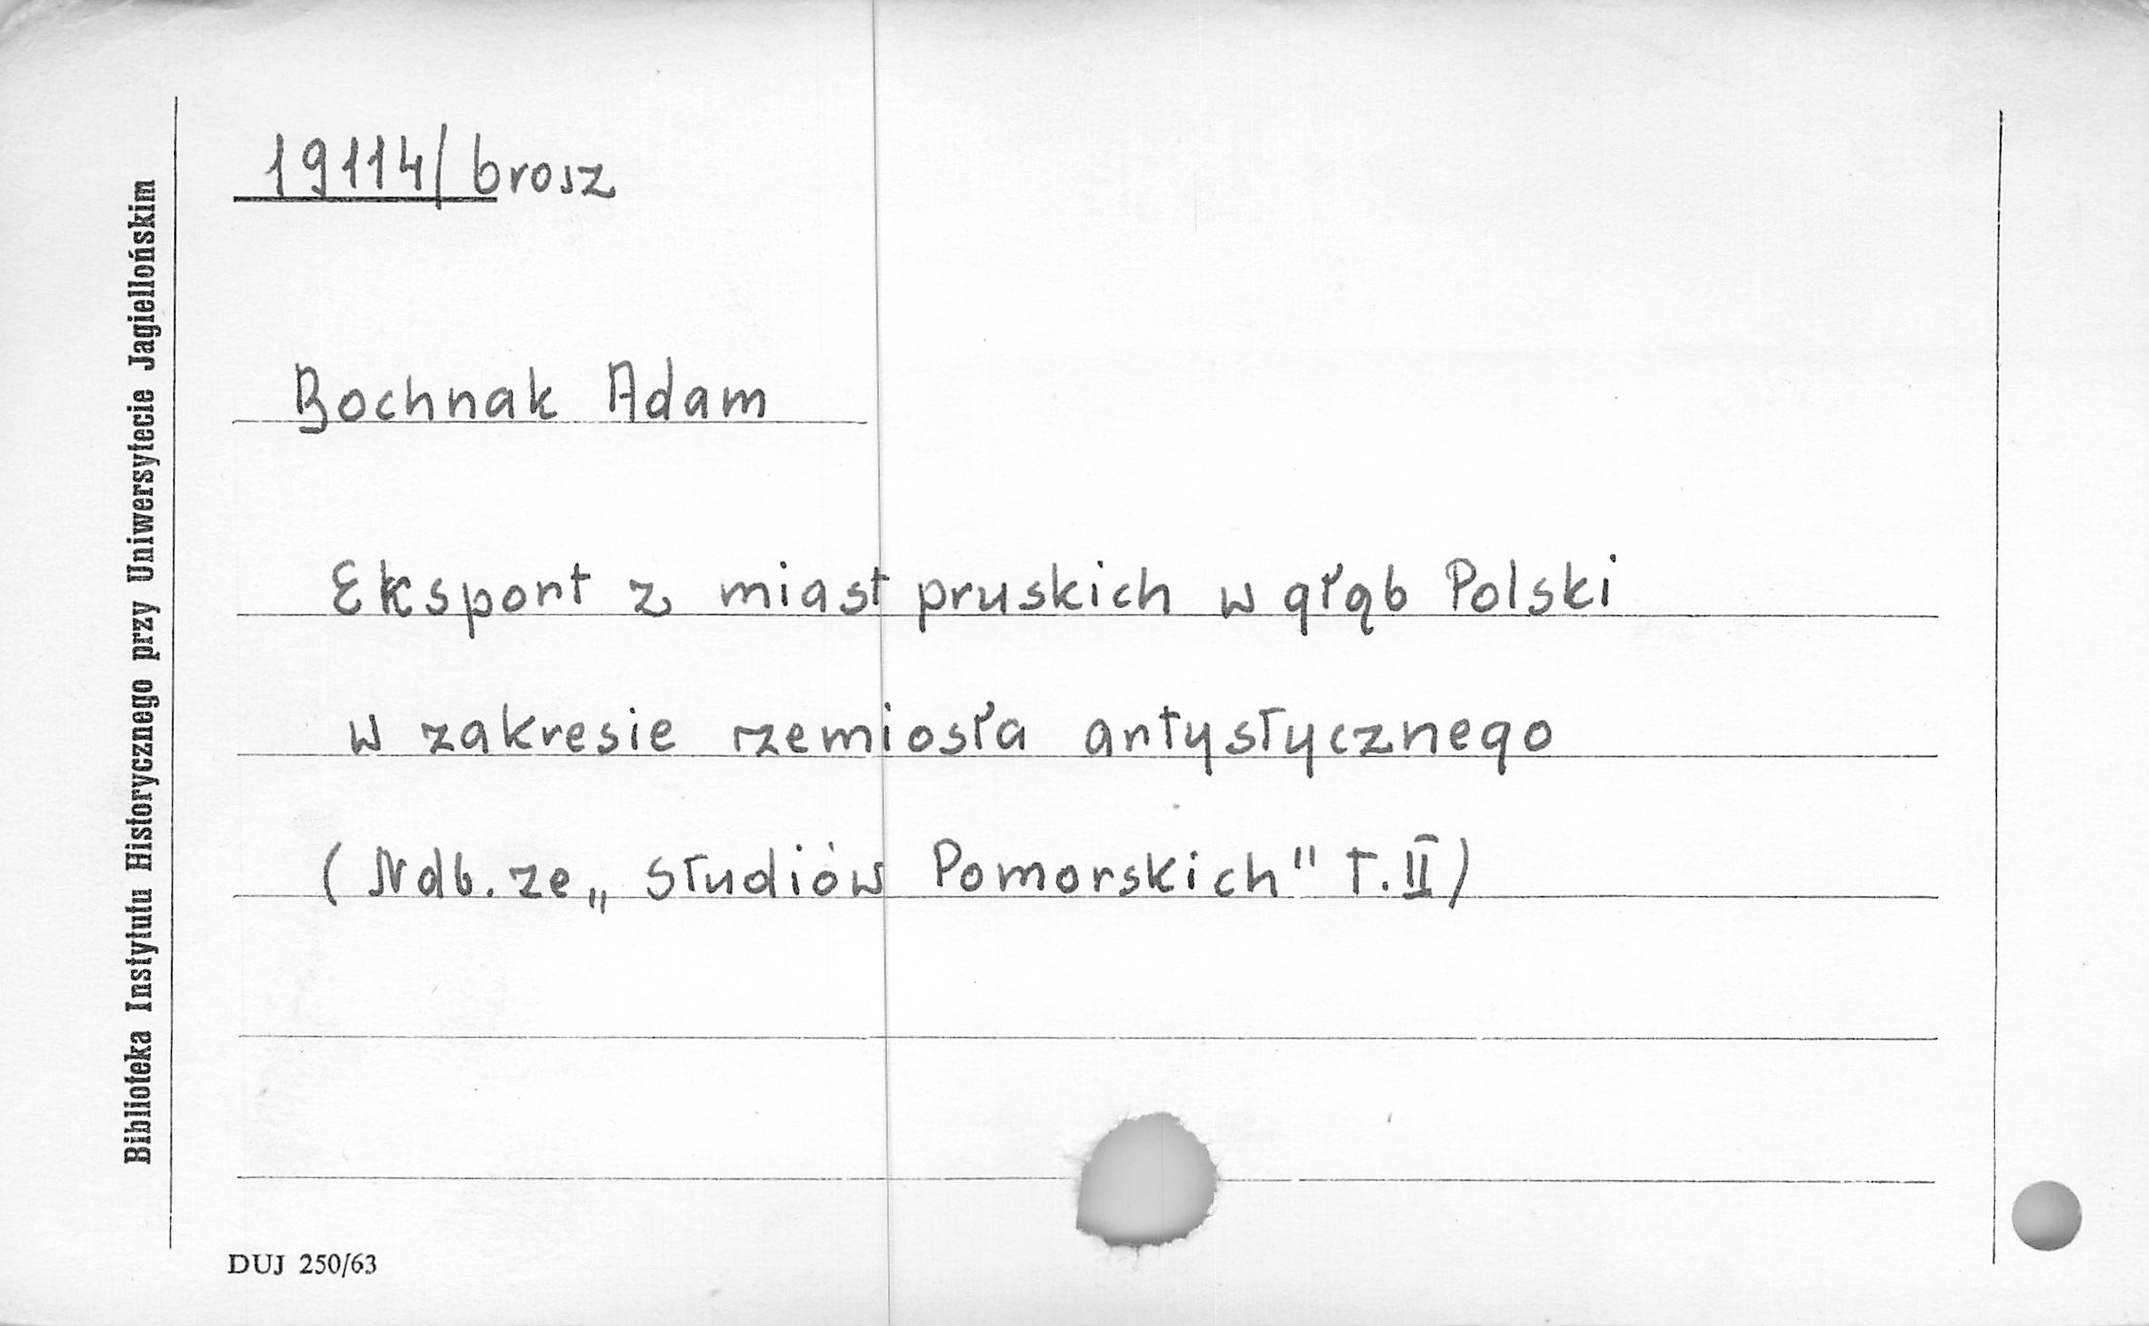 19114/brosz
Bochnak Adam
Eksport z miast pruskich w głąb Polski
w zakresie rzemiosła artystycznego
(Ndb. ze „Studiów Pomorskich" T. II)
Biblioteka Instytutu Historycznego przy Uniwersytecie Jagiellońskim
DUJ 250/63